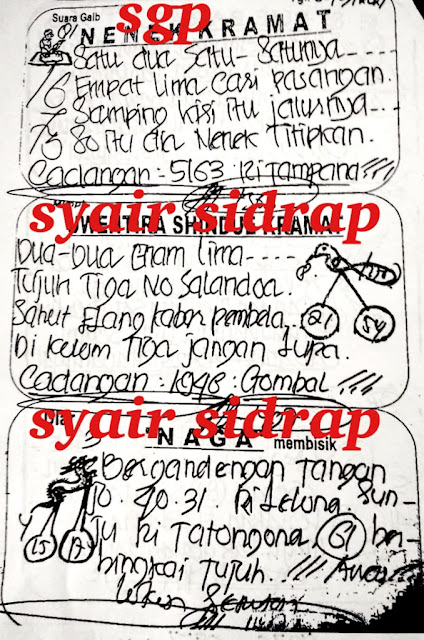 Suara Gaib
NENEK KRAMAT
sgp
Satu dua Satu - Satunya
16 Empat Lima Cari pasangan.
7 Samping kisi itu jalusnya
75 80 itu da Nenek Titipkan.
Cadangan = 5163 : Ki Tampana
syair sidrap
KRAMAT
Dua-Dua Enam Lima
Tujuh Tiga No Salandoa.
Sahut Elang kabar pembela
Di kelem Tiga jangan Lupa.
Cadangan : 1948 : Gombal
21 54
syair sidrap
NAGA membisik
Bergandengan Tangan
10.40.31. Ki Lelung. Sun-
Ju Ki Tatongona 61 ber-
bingkai Tujuh.
15